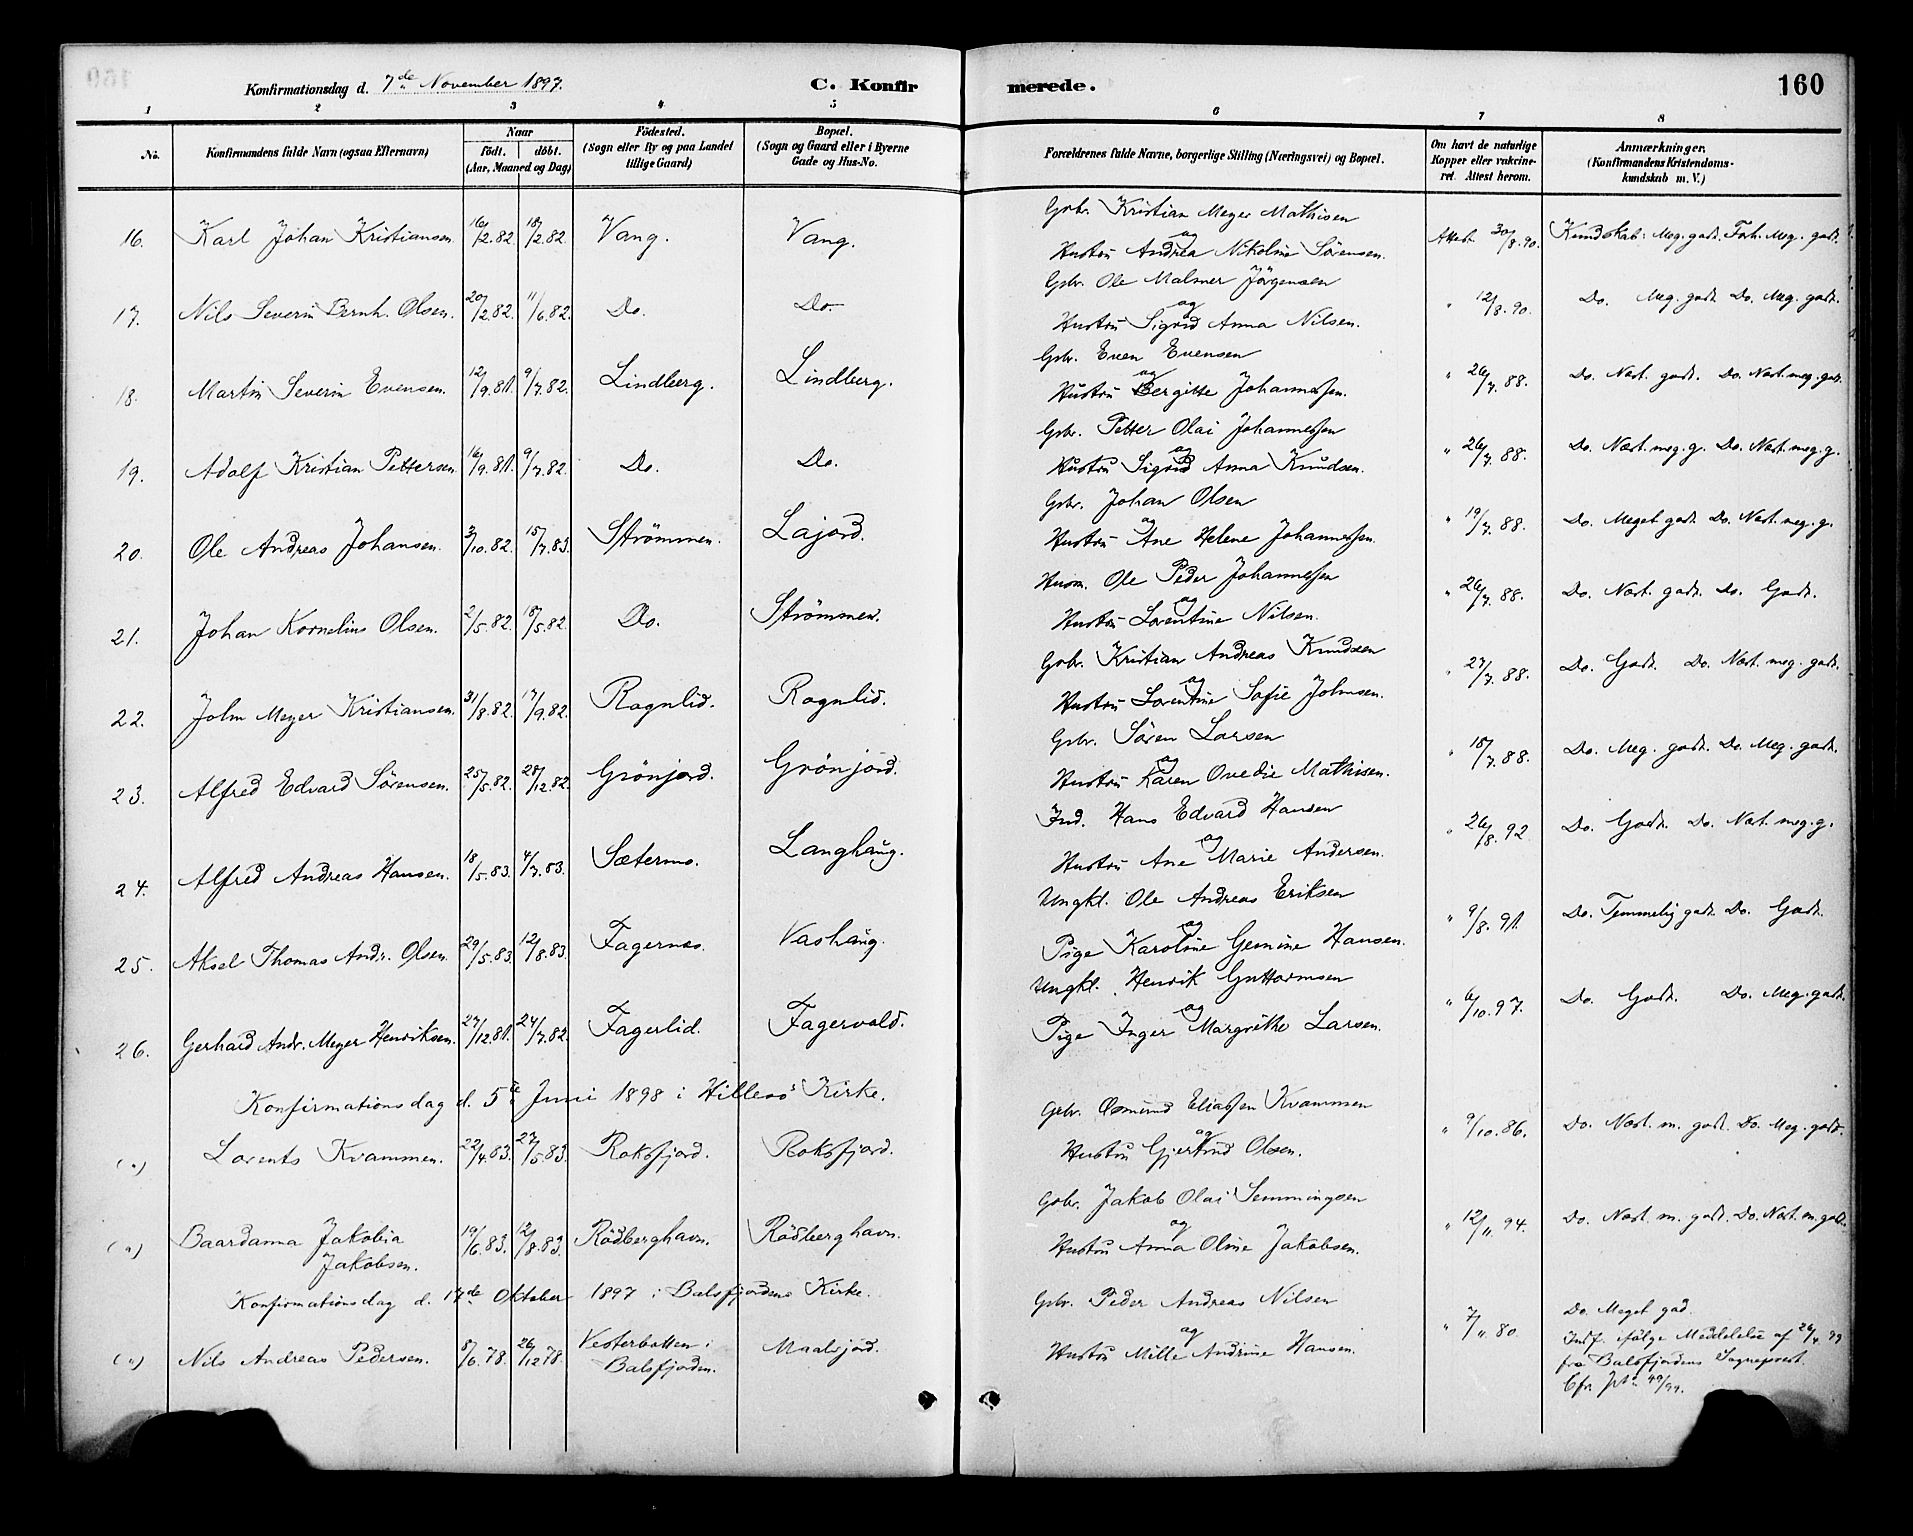 Konfirmationsdag d. 7de November 1897. C. Konfirmerede. 160
1 2 3 4 5 6 7 8
No. Konfirmandens fulde Navn (ogsaa Efternavn) Naar født. døbt. (Aar, Maaned og Dag) Fødested. (Sogn eller By og paa Landet tillige Gaard) Bopæl. (Sogn og Gaard eller i Byerne Gade og Hus-No. Forældrenes fulde Navne, borgerlige Stilling (Næringsvei) og Bopæl. Om havt de naturlige Kopper eller vakcineret. Attest herom. Anmærkninger. (Konfirmandens Kristendomskundskab m. V.)
Gbr. Kristian Meyer Mathisen
16. Karl Johan Kristiansen. 16/2.82. 18/2.82. Vang. Vang. og Hustru Andrea Nikoline Sørensen. Attest 30/8.90. Kundskab: Meg. godt. Forh. Meg. godt.
Gbr. Ole Malmer Jørgensen
17. Nils Severin Bernh. Olsen. 20/2.82. 11/6.82. Do. Do. og Hustru Sigrid Anna Nilsen. " 12/8.90. Do. Meg. godt. Do. Meg. godt.
Gbr. Even Evensen
18. Martin Severin Evensen. 12/9.81. 9/7.82. Lindberg. Lindberg. og Hustru Bergitte Johannessen. " 26/7.88. Do. Næst. godt. Do. Næst. meg. godt.
Gbr. Petter Olai Johannessen
19. Adolf Kristian Pettersen. 16/9.81. 9/7.82. Do. Do. og Hustru Sigrid Anna Knudsen. " 26/7.88. Do. Næst. meg. g. Do. Næst. meg. g.
Gbr. Johan Olsen
20. Ole Andreas Johansen. 3/10.82. 15/7.83. Strømmen. Lajord. og Hustru Ane Helene Johannessen. " 19/7.88. Do. Meget godt. Do. Næst. meg. g.
Husm. Ole Peder Johannessen
21. Johan Kornelius Olsen. 2/5.82. 18/5.82. Do. Strømmen. og Hustru Lorentine Nilsen. " 26/7.88. Do. Næst. godt. Do. Godt.
Gbr. Kristian Andreas Knudsen
22. John Meyer Kristiansen. 31/8.82. 17/9.82. Rognlid. Rognlid. og Hustru Lorentine Sofie Johnsen. " 27/7.88. Do. Godt. Do. Næst. meg. godt.
Gbr. Søren Larsen
23. Alfred Edvard Sørensen. 25/5.82. 28/12.82. Grønjord. Grønjord. og Hustru Karen Ovedie Mathisen. " 18/7.88. Do. Meg. godt. Do. Meg. godt.
Ind. Hans Edvard Hansen
24. Alfred Andreas Hansen. 18/5.83. 4/7.83. Sætermo. Langhaug. og Hustru Ane Marie Andersen. " 26/8.92 Do. Godt. Do. Næst. meg. g.
Ungkl. Ole Andreas Eriksen
25. Aksel Thomas Andr. Olsen. 29/5.83. 12/8.83. Fagernes. Vashaug. og Pige Karoline Gemine Hansen. " 9/8.91. Do. Temmelig godt. Do. Godt.
Ungkl. Henrik Guttormsen
26. Gerhard Andr. Meyer Henriksen. 27/12.81. 24/7.82. Fagerlid. Fagervold. og Pige Inger Margrethe Larsen. " 6/10.97. Do. Godt. Do. Meg. godt.
Konfirmationsdag d. 5te Juni 1898 i Hillesø Kirke.
Gbr. Osmund Eliassen Kvammen
(") Lorents Kvammen. 22/4.83. 27/5.83. Roksfjord. Roksfjord. og Hustru Gjertrud Olsen. " 9/10.86. Do. Næst. m. godt. Do. Meg. godt.
Gbr. Jakob Olai Semmingsen
(") Baardanna Jakobia Jakobsen. 19/6.83. 12/8.83. Rødberghavn. Rødberghavn. og Hustru Anna Oline Jakobsen. " 12/11 94. Do. Næst. m. godt. Do. Næst. m. godt.
Konfirmationsdag d. 17de Oktober 1897 i Balsfjordens Kirke.
Gbr. Peder Andreas Nilsen
(") Nils Andreas Pedersen. 8/6.78. 26/12 78. Vesterbotten i Balsfjorden. Maalsjord. og Hustru Mille Andrine Hansen. " 7/11 80. Do. Meget god.
Indf. ifølge Meddelelse af 26/4 99
fra Balsfjordens Sogneprest.
Cfr. 49/99.